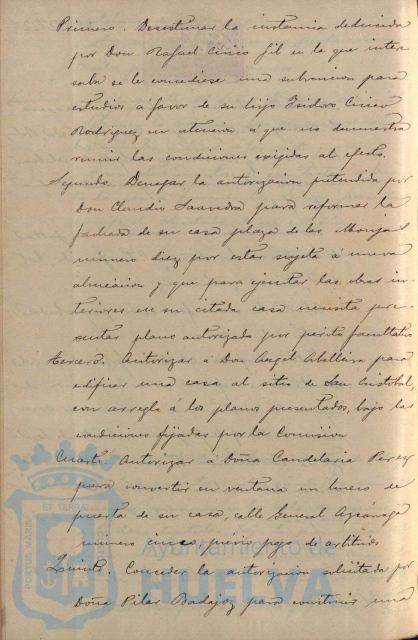 Primero. Desestimar la instancia deducida
por Don Rafael Cinco Gil en la que intere-
saba se le concediese una subvencion para
estudios á favor de su hijo Isidoro Cinco
Rodriguez en atencion á que no demuestra
reunir las condiciones exigidas al efecto.
Segundo. Denegar la autorizacion pretendida por
Don Claudio Saavedra para reformar la
fachada de su casa plaza de las Monjas
número diez por estar sujeta á nueva
alineacion y que para ejecutar las obras in-
teriores en su citada casa necesita pre-
sentar plano autorizado por perito facultativo
Tercero. Autorizar á Don Angel Abelleira para
edificar una casa al sitio de San Cristobal,
con arreglo á los planos presentados, bajo las
condiciones fijadas por la Comision
Cuarto. Autorizar á Doña Candelaria Perez
para convertir en ventana un hueco de
puerta de su casa, calle General Azcárraga
número cinco, prévio pago de arbitrios
Quinto. Conceder la autorizacion solicitada por
Doña Pilar Badajoz para construir una
Ayuntamiento de
HUELVA
PORTUS MARIS ET TERRAE